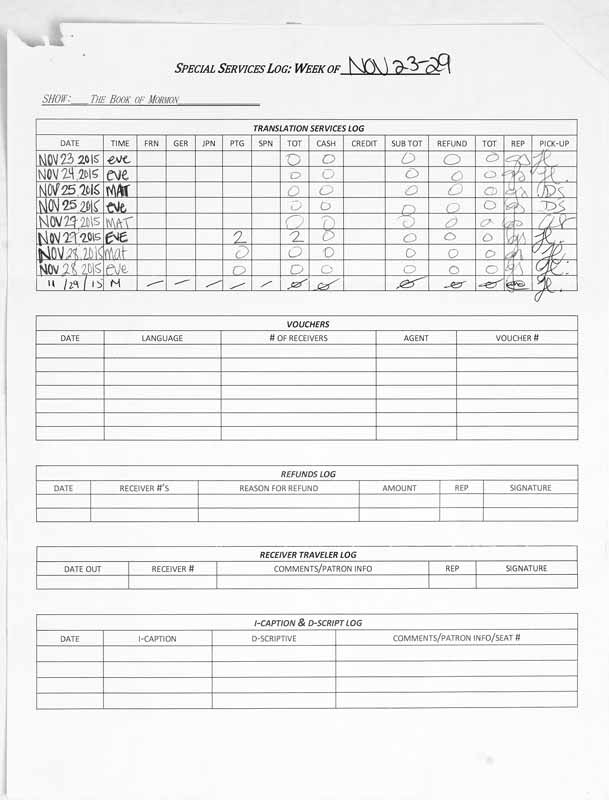 SPECIAL SERVICES LOG: WEEK OF NOV 23-29
SHOW: THE BOOK OF MORMON
TRANSLATION SERVICES LOG
DATE TIME FRN GER JPN PTG SPN TOT CASH CREDIT SUB TOT REFUND TOT REP PICK-UP
NOV 23 2015 eve 0 0 0 0 0
NOV 24 2015 eve 0 0 0 0 0
NOV 25 2015 MAT 0 0 0 0 0 DS
NOV 25 2015 eve 0 0 0 0 0 DS
NOV 27 2015 MAT 0 0 0 0 0
NOV 27 2015 EVE 2 2 0 0 0 0
NOV 28 2015 mat 0 0 0 0 0 0
NOV 28 2015 eve 0 0 0 0 0 0
11/29/15 M — — — — — 0 0 0 0 0
VOUCHERS
DATE LANGUAGE # OF RECEIVERS AGENT VOUCHER #
REFUNDS LOG
DATE RECEIVER #'S REASON FOR REFUND AMOUNT REP SIGNATURE
RECEIVER TRAVELER LOG
DATE OUT RECEIVER # COMMENTS/PATRON INFO REP SIGNATURE
I-CAPTION & D-SCRIPT LOG
DATE I-CAPTION D-SCRIPTIVE COMMENTS/PATRON INFO/SEAT #